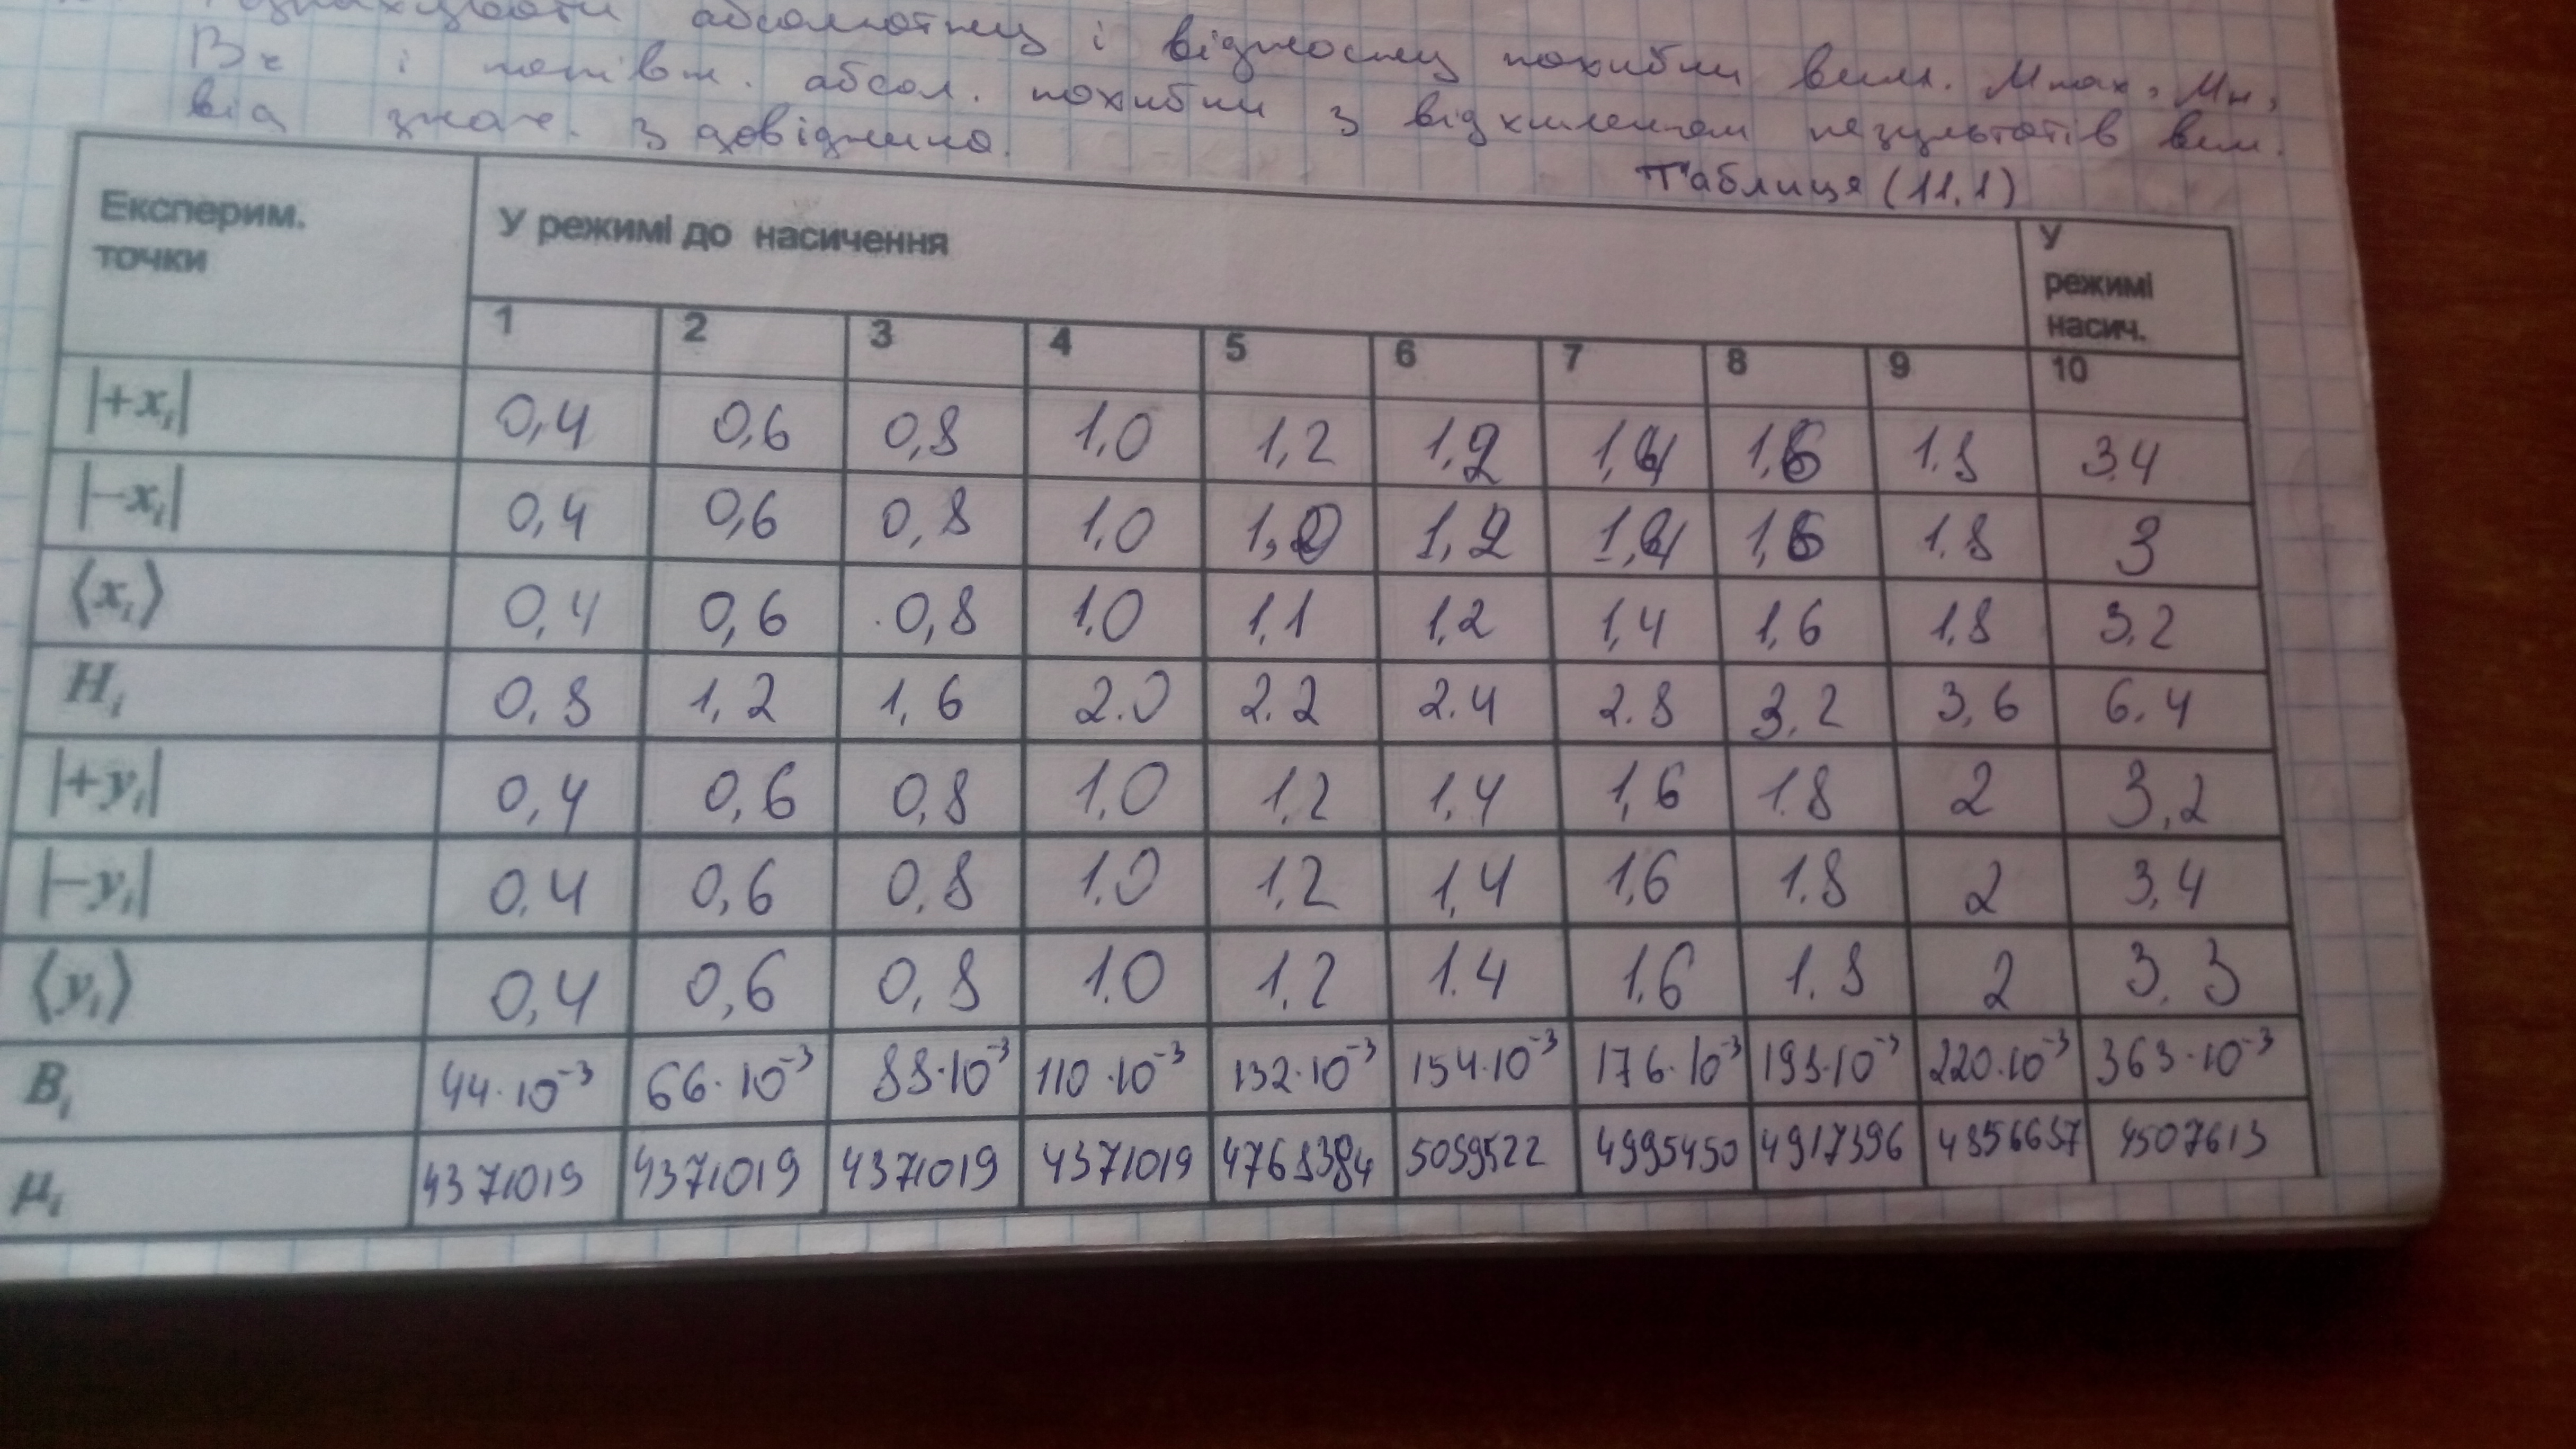 абсолютну і відносну похибки вим. Мmax, Мн,
Вч і порівн. абсол. похибки з відхиленням результатів вим.
від знач. з довідника.
Таблиця (11.1)
Експерим. точки У режимі до насичення У режимі насич.
1 2 3 4 5 6 7 8 9 10
|+xᵢ| 0,4 0,6 0,8 1,0 1,2 1,2 1,4 1,6 1.8 3.4
|−xᵢ| 0,4 0,6 0,8 1,0 1,0 1,2 1,4 1,6 1.8 3
⟨xᵢ⟩ 0,4 0,6 0,8 1.0 1,1 1,2 1,4 1,6 1,8 3,2
Hᵢ 0,8 1,2 1,6 2.0 2.2 2.4 2.8 3,2 3,6 6.4
|+yᵢ| 0,4 0,6 0,8 1,0 1,2 1,4 1,6 1.8 2 3,2
|−yᵢ| 0.4 0,6 0,8 1.0 1,2 1,4 1,6 1.8 2 3,4
⟨yᵢ⟩ 0,4 0,6 0,8 1.0 1,2 1.4 1.6 1.8 2 3.3
Bᵢ 44·10⁻³ 66·10⁻³ 88·10⁻³ 110·10⁻³ 132·10⁻³ 154·10⁻³ 176·10⁻³ 198·10⁻³ 220·10⁻³ 363·10⁻³
μᵢ 4371019 4371019 4371019 4371019 4768384 5099522 4995450 4917396 4856687 4507613